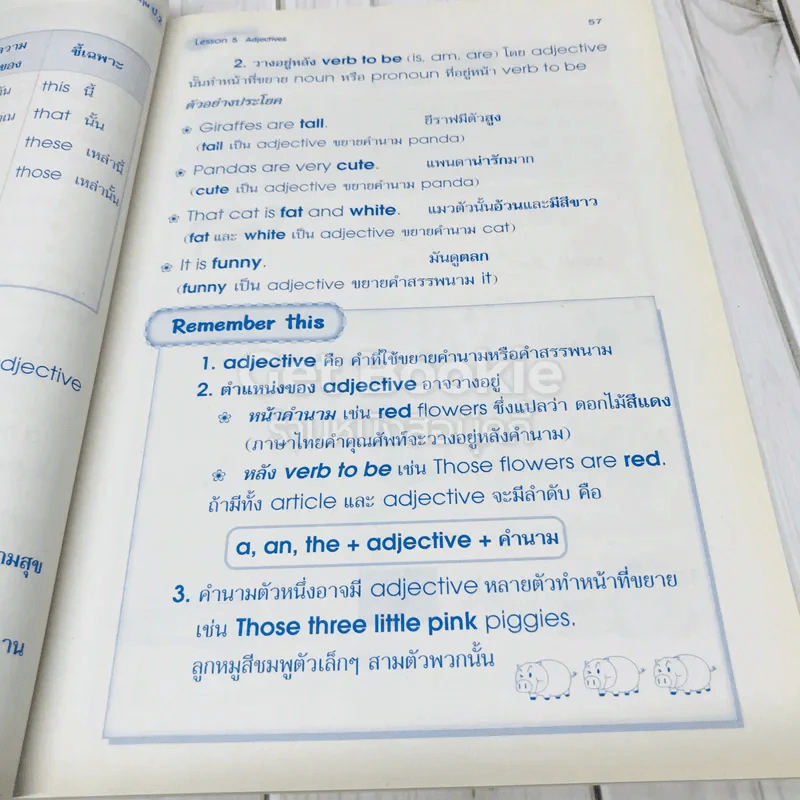 ชี้เฉพาะ
this นี้
that นั้น
these เหล่านี้
those เหล่านั้น
djective
57
Lesson 5 Adjectives
2. วางอยู่หลัง verb to be (is, am, are) โดย adjective
นั้นทำหน้าที่ขยาย noun หรือ pronoun ที่อยู่หน้า verb to be
ตัวอย่างประโยค
Giraffes are tall. ยีราฟมีตัวสูง
(tall เป็น adjective ขยายคำนาม panda)
Pandas are very cute. แพนดาน่ารักมาก
(cute เป็น adjective ขยายคำนาม panda)
That cat is fat and white. แมวตัวนั้นอ้วนและมีสีขาว
(fat และ white เป็น adjective ขยายคำนาม cat)
It is funny. มันดูตลก
(funny เป็น adjective ขยายคำสรรพนาม it)
Remember this
1. adjective คือ คำที่ใช้ขยายคำนามหรือคำสรรพนาม
2. ตำแหน่งของ adjective อาจวางอยู่
หน้าคำนาม เช่น red flowers ซึ่งแปลว่า ดอกไม้สีแดง
(ภาษาไทยคำคุณศัพท์จะวางอยู่หลังคำนาม)
หลัง verb to be เช่น Those flowers are red.
ถ้ามีทั้ง article และ adjective จะมีลำดับ คือ
a, an, the + adjective + คำนาม
3. คำนามตัวหนึ่งอาจมี adjective หลายตัวทำหน้าที่ขยาย
เช่น Those three little pink piggies.
ลูกหมูสีชมพูตัวเล็กๆ สามตัวพวกนั้น
Get Bookie